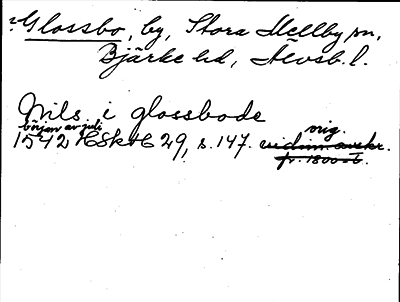 ?Glossbo, by, Stora Mellby sn,
Bjärke hd, Älvsb. l.
Nils i glossbode
början av juli
1542 HSkH 29, s. 147. orig.
vidim. avskr.
fr. 1800-t.